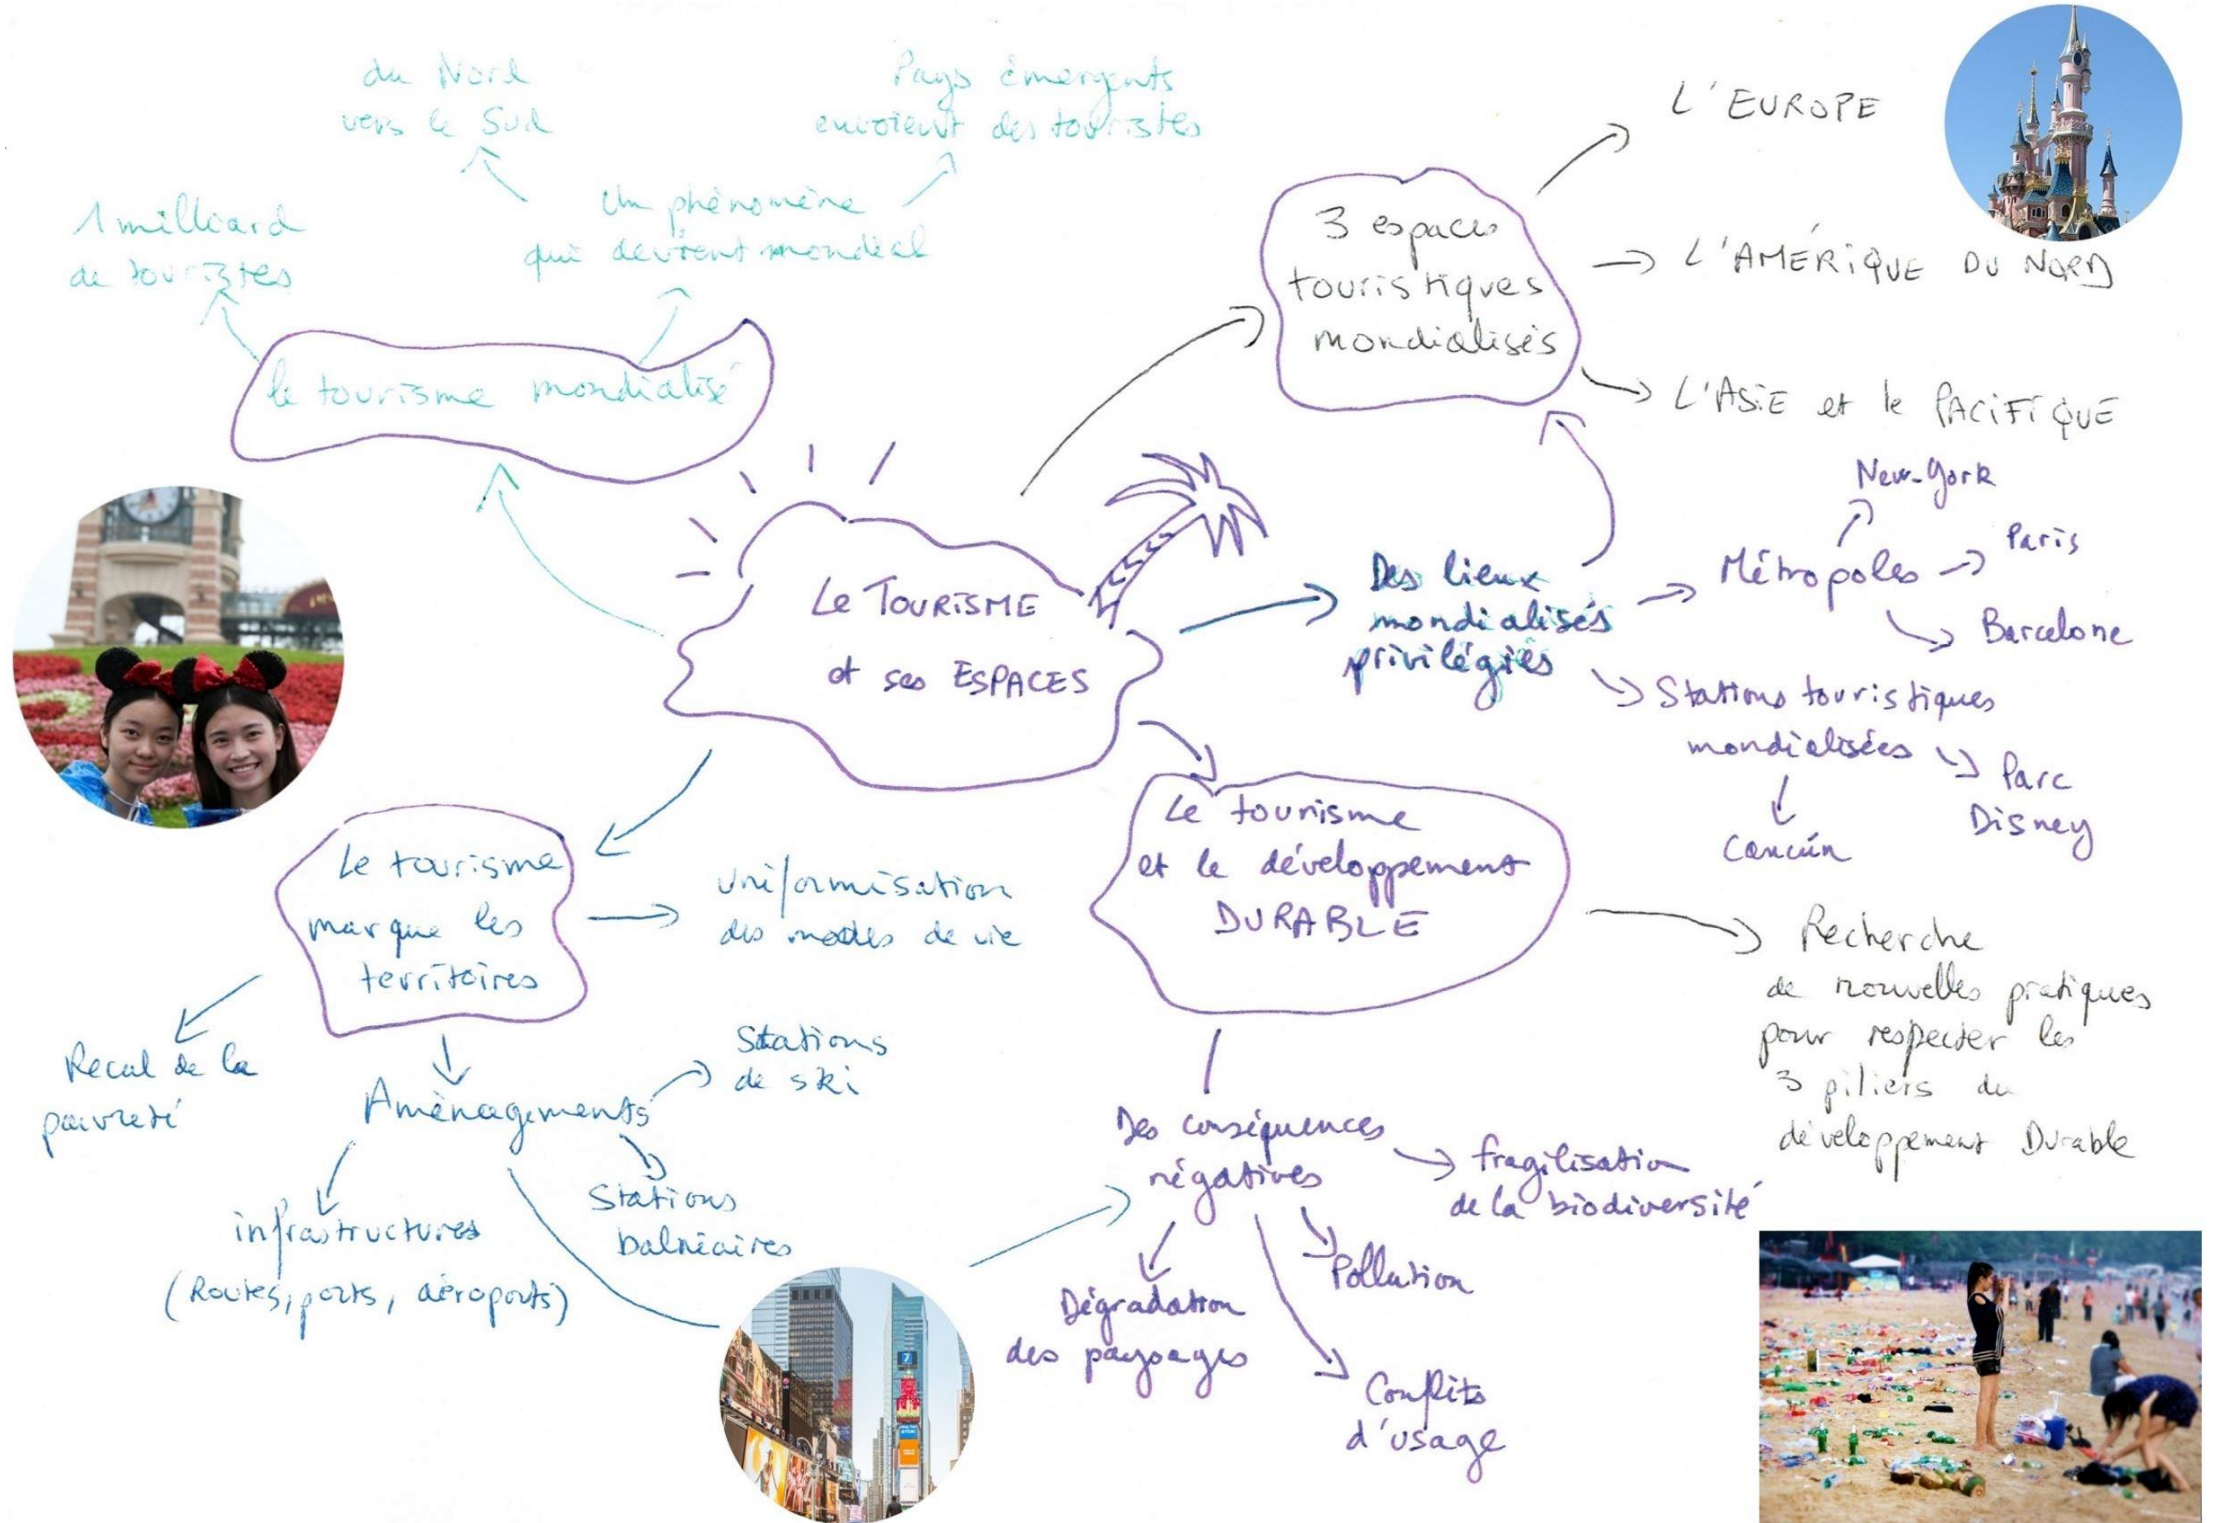 Le TOURISME
et ses ESPACES
le tourisme mondialisé
1 milliard
de touristes
Un phénomène
qui devient mondial
du Nord
vers le Sud
Pays émergents
envoient des touristes
3 espaces
touristiques
mondialisés
L'EUROPE
L'AMÉRIQUE DU NORD
L'ASIE et le PACIFIQUE
Des lieux
mondialisés
privilégiés
Métropoles
New-York
Paris
Barcelone
Stations touristiques
mondialisées
Parc
Disney
Cancún
Le tourisme
et le développement
DURABLE
Recherche
de nouvelles pratiques
pour respecter les
3 piliers du
développement Durable
Des conséquences
négatives
fragilisation
de la biodiversité
Pollution
Conflits
d'usage
Dégradation
des paysages
Le tourisme
marque les
territoires
uniformisation
des modes de vie
Recul de la
pauvreté
Aménagements
Stations
de ski
Stations
balnéaires
infrastructures
(Routes, ports, aéroports)
7